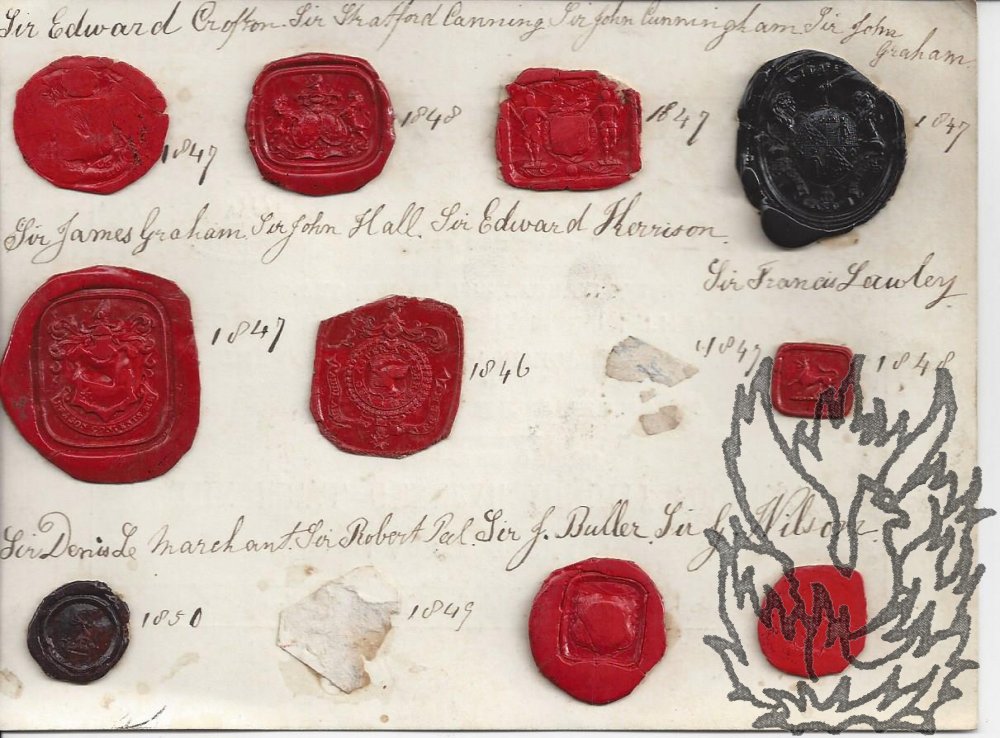 Sir Edward Crofton Sir Stratford Canning Sir John Cunningham Sir John
Graham.
1847 1848 1847 1847
Sir James Graham. Sir John Hall. Sir Edward Kerrison.
Sir Francis Lawley
1847 1846 1847 1848
Sir Denis Le Marchant. Sir Robert Peel. Sir J. Buller. Sir J. Wilson.
1850 1849